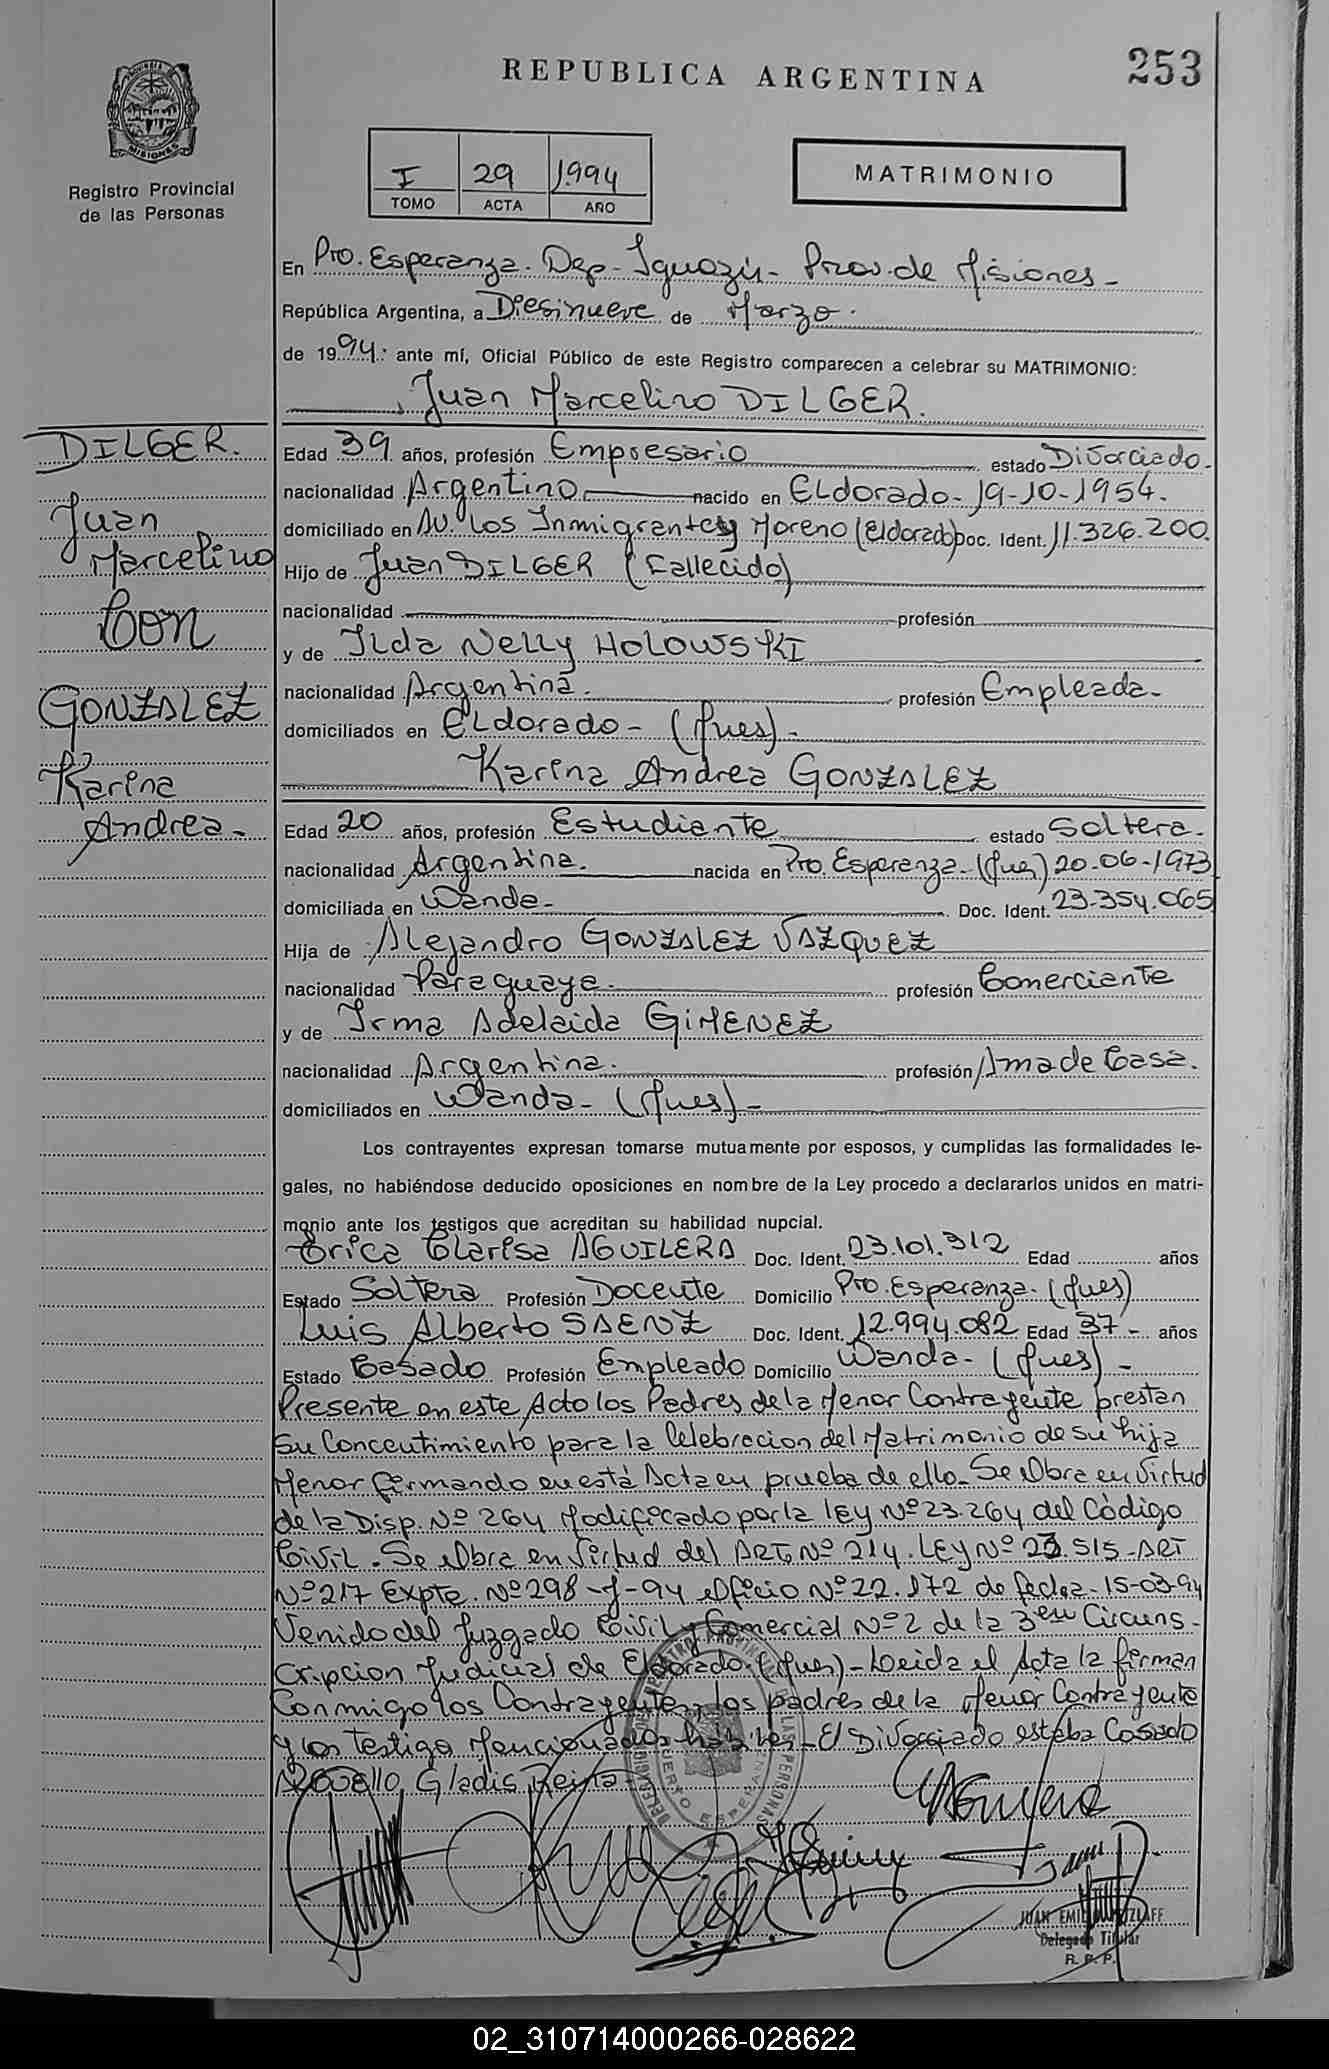 REPUBLICA ARGENTINA
253
PROVINCIA DE
MISIONES
Registro Provincial
de las Personas
I 29 1994
TOMO ACTA AÑO
MATRIMONIO
En Pto. Esperanza. Dep- Iguazú- Prov. de Misiones-
República Argentina, a Diesinueve de Marzo.
de 1994: ante mí, Oficial Público de este Registro comparecen a celebrar su MATRIMONIO:
Juan Marcelino DILGER.
DILGER.
Juan
Marcelino
Con
GONZALEZ
Karina
Andrea-
Edad 39 años, profesión Empresario estado Divorciado-
nacionalidad Argentino nacido en ELdorado- 19-10-1954.
domiciliado en Av. Los Inmigrantes y Moreno (Eldorado) Doc. Ident. 11.326.200.
Hijo de Juan DILGER (Fallecido)
nacionalidad profesión
y de Ilda Nelly HOLOWSKI
nacionalidad Argentina. profesión Empleada-
domiciliados en ELdorado- (Mnes)-
Karina Andrea GONZALEZ
Edad 20 años, profesión Estudiante estado Soltera-
nacionalidad Argentina. nacida en Pto. Esperanza-(Mnes) 20-06-1973
domiciliada en Wanda- Doc. Ident. 23-354.065
Hija de Alejandro GONZALEZ VAZQUEZ
nacionalidad Paraguaya. profesión Comerciante
y de Irma Adelaida GIMENEZ
nacionalidad Argentina. profesión Ama de Casa.
domiciliados en Wanda- (Mnes)-
Los contrayentes expresan tomarse mutuamente por esposos, y cumplidas las formalidades le-
gales, no habiéndose deducido oposiciones en nombre de la Ley procedo a declararlos unidos en matri-
monio ante los testigos que acreditan su habilidad nupcial.
Erica Clarisa AGUILERA Doc. Ident. 23.101.312 Edad años
Estado Soltera Profesión Docente Domicilio Pto. Esperanza-(Mnes)
Luis Alberto SAENZ Doc. Ident. 12.994.082 Edad 37- años
Estado Casado Profesión Empleado Domicilio Wanda- (Mnes)-
Presente en este Acto los Padres de la Menor Contrayente prestan
su Concentimiento para la Celebracion del Matrimonio de su hija
Menor firmando en está Acta en prueba de ello- Se Obra en Virtud
de la Disp. Nº 264 Modificado por la ley Nº 23.264 del Código
Civil. Se Obra en Virtud del ART. Nº 214. LEY Nº 23.515-ART
Nº 217 Expte. Nº 298-J-94 Oficio Nº 22.172 de fecha-15-03-94
Venido del Juzgado Civil y Comercial Nº 2 de la 3era Circuns-
cripcion Judicial de Eldorado. (Mnes)- Leida el Acta la firman
Conmigo los Contrayentes, los padres de la Menor Contrayente
y los Testigo Mencionados hábiles- El Divorciado estaba Casado
Gladis Reina
Aguilera
JUAN EMI
Delegado Titular
R. P. P.
02_310714000266-028622